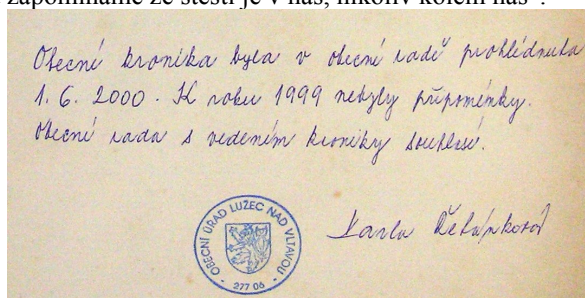 zapomínáme že štěstí je v nás, nikoliv kolem nás“.
Obecní kronika byla v obecní radě prohlédnuta
1. 6. 2000. K roku 1999 nebyly připomínky.
Obecní rada s vedením kroniky souhlasí.
OBECNÍ ÚŘAD LUŽEC NAD VLTAVOU
277 06